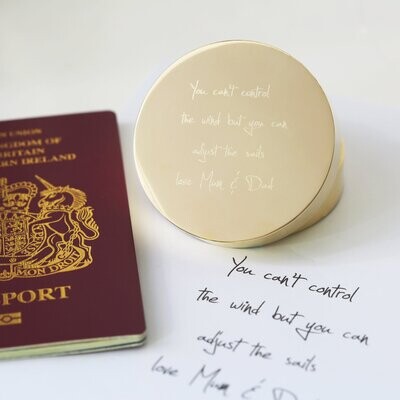 N UNION
NGDOM OF
BRITAIN
ERN IRELAND
MON DROIT
SPORT
You can't control
the wind but you can
adjust the sails
love Mum & Dad
You can't control
the wind but you can
adjust the sails
love Mum & D